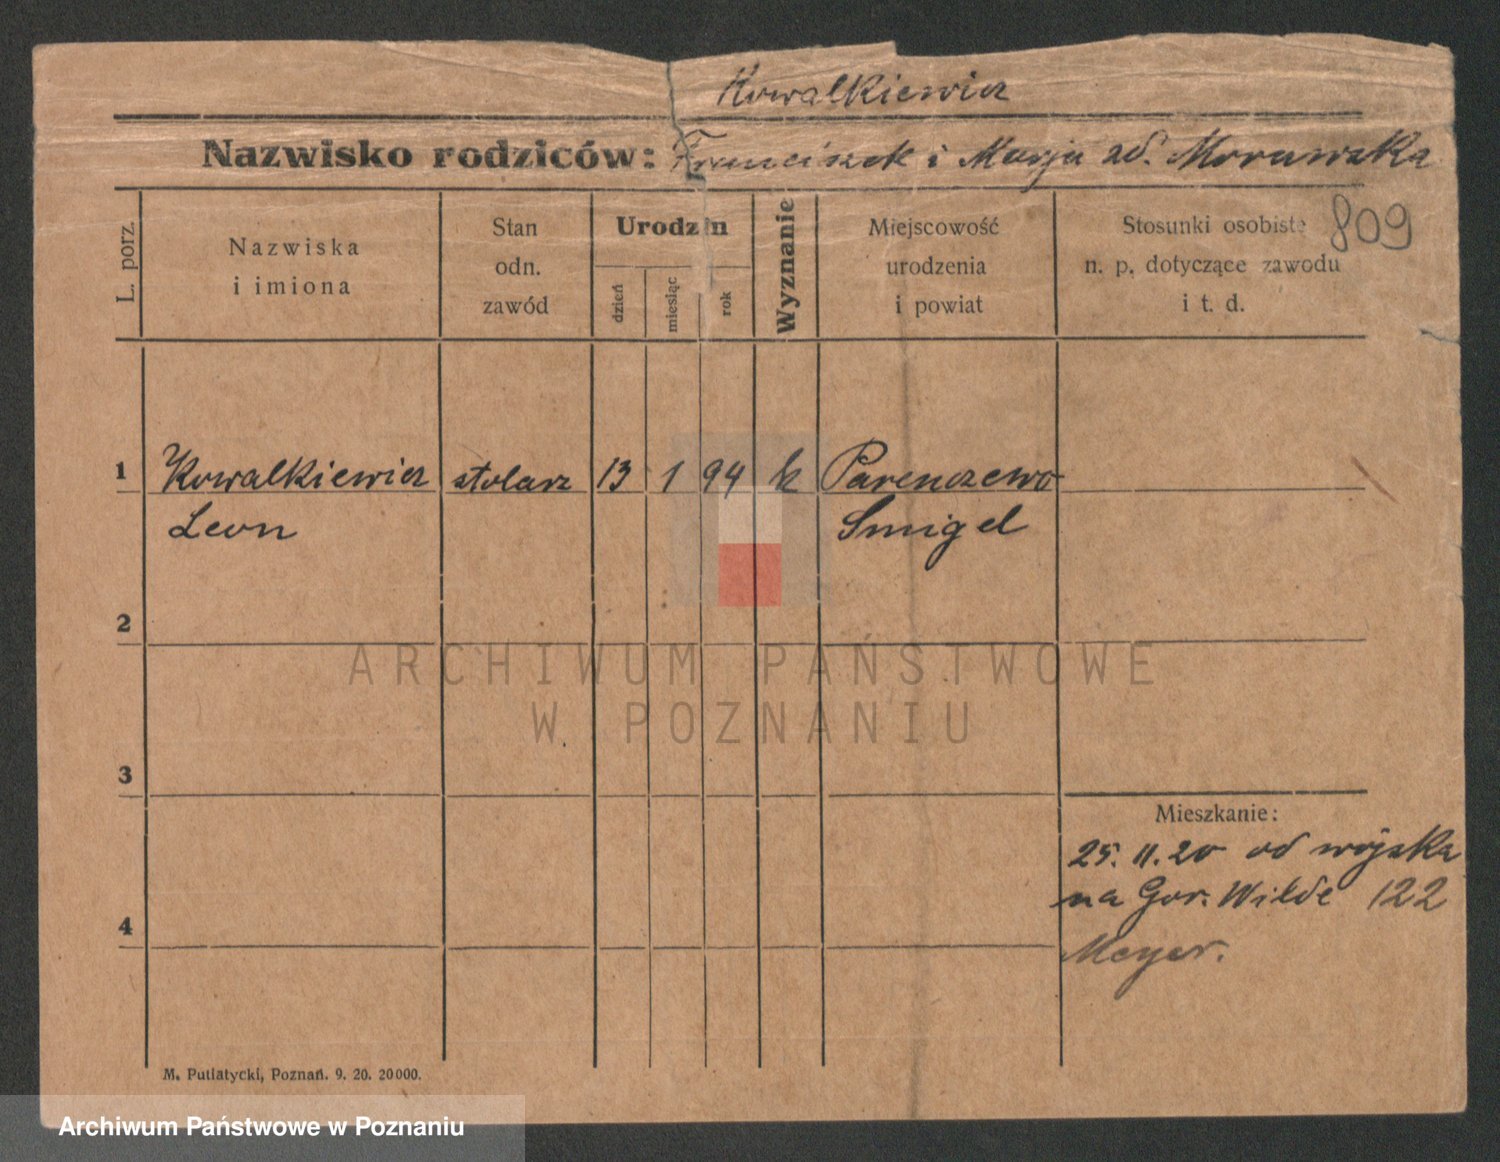 Kowalkiewicz
Nazwisko rodziców: Franciszek i Marja zd. Morawska
809
L. porz.
Nazwiska
i imiona
Stan
odn.
zawód
Urodzin
dzień
miesiąc
rok
Wyznanie
Miejscowość
urodzenia
i powiat
Stosunki osobiste
n. p. dotyczące zawodu
i t. d.
1 Kowalkiewicz stolarz 13 1 94 k Parenczewo
Leon Smigel
2
ARCHIWUM PAŃSTWOWE
W POZNANIU
3
Mieszkanie:
25. 11. 20 od wojska
na Gor. Wilde 122
4
Meyer.
M. Putiatycki, Poznań. 9. 20. 20000.
Archiwum Państwowe w Poznaniu